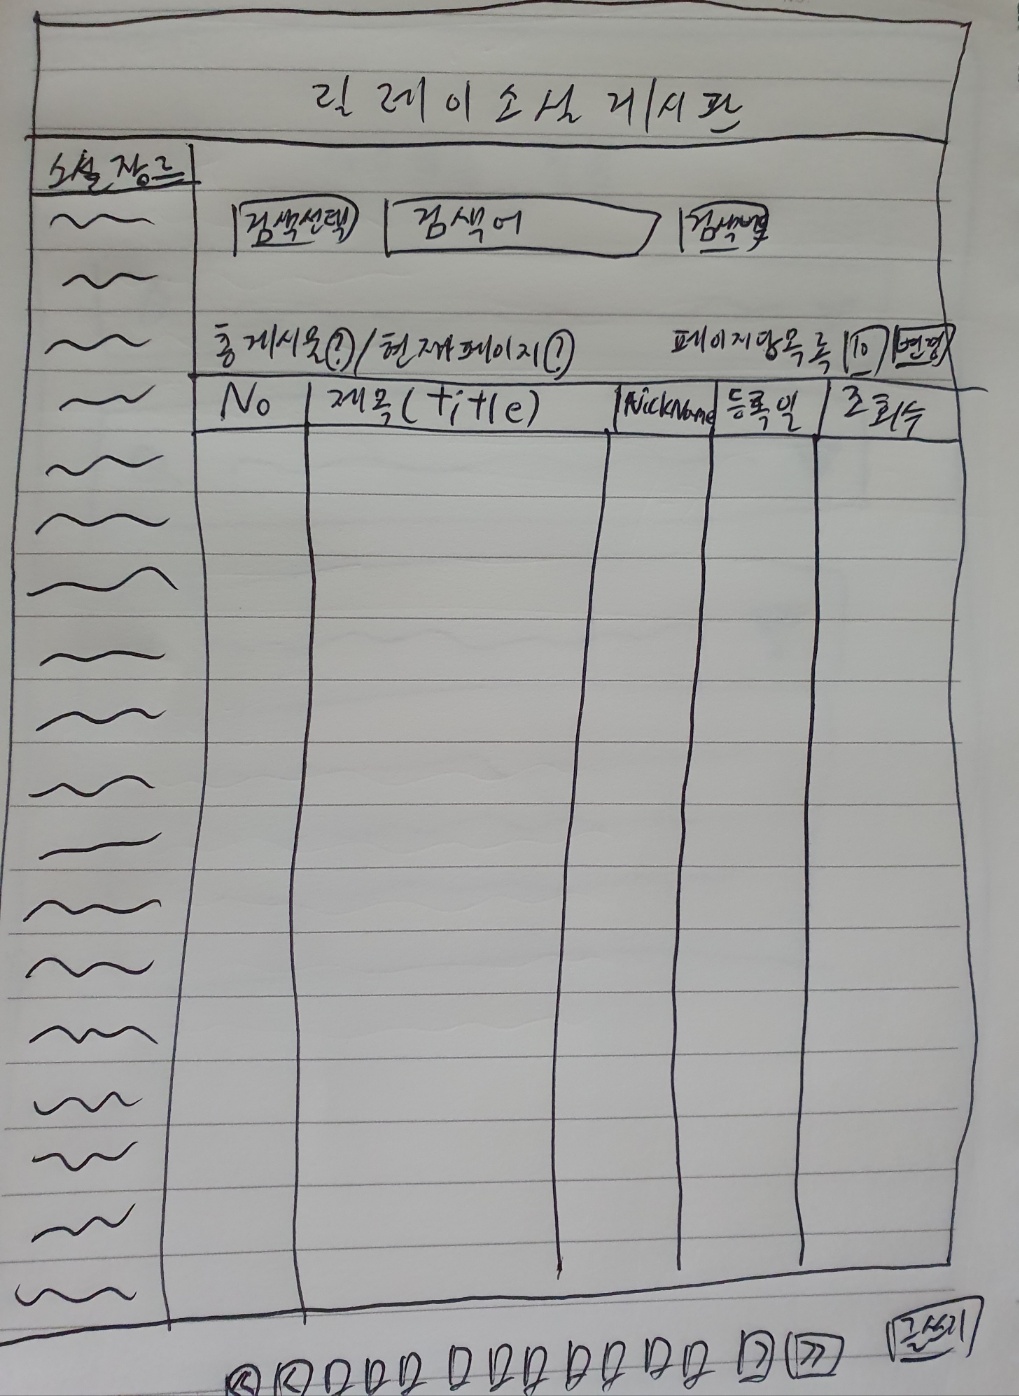 릴레이소설게시판
소설 장르
검색선택 검색어
총게시물(?)/현재페이지(?) 페이지당목록 10 변경
No 제목(title) NickName 등록일 조회수
글쓰기